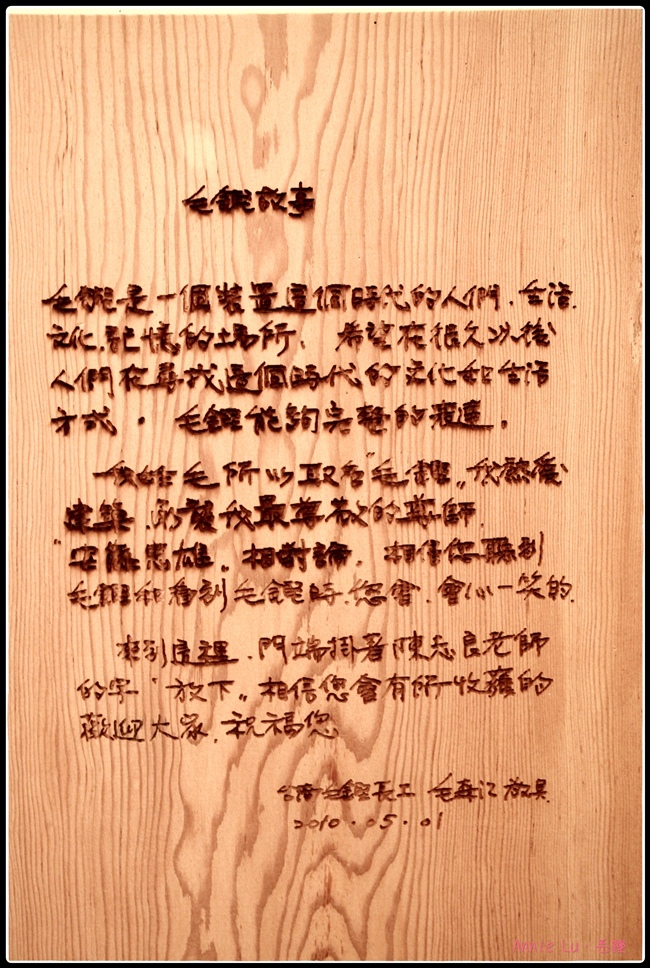 毛鏗故事
毛鏗是一個裝置這個時代的人們．生活．
文化．記憶的場所． 希望在很久以後
人們在尋找這個時代的文化和生活
方式． 毛鏗能夠完整的表達．
我姓毛所以取名"毛鏗"．我熱愛
建築．所以我最尊敬的導師．
"安藤忠雄"．相對論． 相信您聽到
毛鏗和看到毛鏗時．您會．會心一笑的．
來到這裡．門端掛著陳志良老師
的字"放下"．相信您會有所收穫的
歡迎大家．祝福您
台南毛鏗長工 毛森江 敬具
2010．05．01